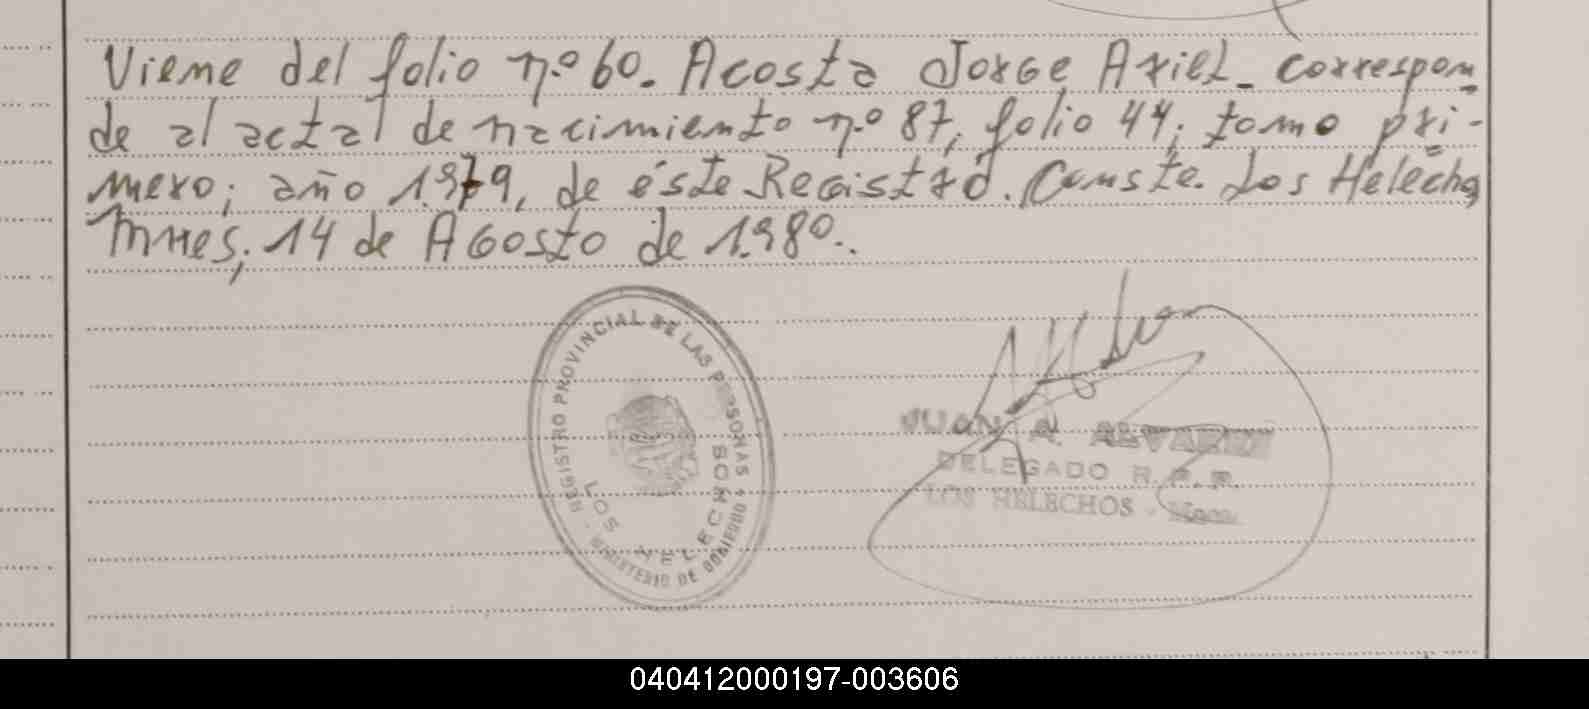 Viene del folio n.o 60. Acosta Jorge Ariel_ correspon
de al actal de nacimiento n.o 87, folio 44; tomo pri-
mero; año 1.979, de éste Registro. Conste. Los Helechos
Mnes; 14 de Agosto de 1.980..
REGISTRO PROVINCIAL DE LAS PERSONAS
MINISTERIO DE GOBIERNO
LOS HELECHOS
JUAN A.
DELEGADO R. P. P.
LOS HELECHOS -
040412000197-003606